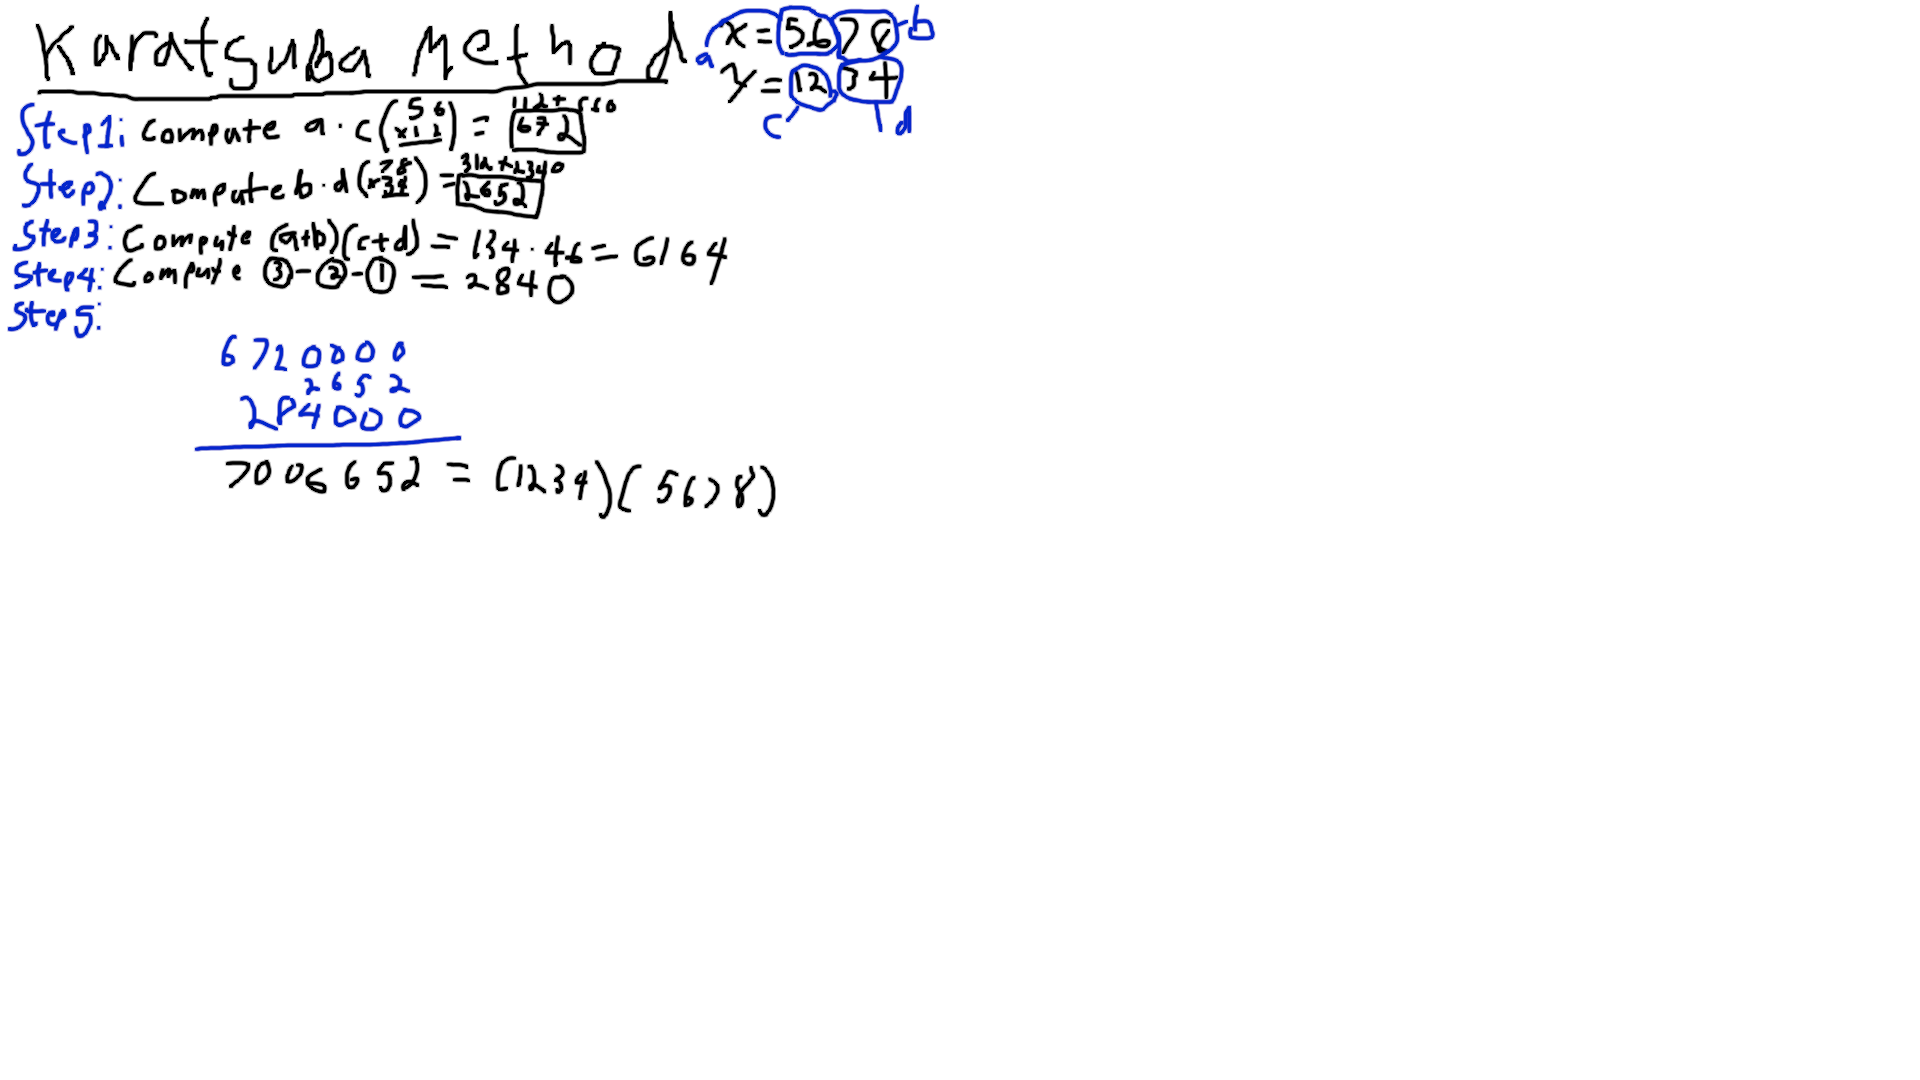 Karatsuba Method
x = 5678
y = 1234
a
b
c
d
Step1: Compute a · c (56 x12) = 672
112 + 560
Step2: Compute b · d (78 x34) = 2652
312 + 2340
Step3: Compute (a+b)(c+d) = 134 · 46 = 6164
Step4: Compute ③ - ② - ① = 2840
Step5:
6720000
2652
284000
7006652 = (1234)(5678)